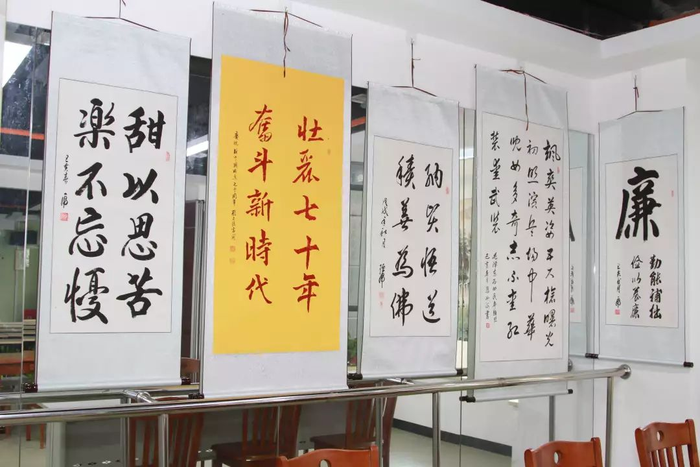 甜以思苦
樂不忘懮
己亥春
壯麗七十年
奮斗新時代
悟道
積善為佛
颯爽英姿五尺槍曙光
初照演兵場中華
兒女多奇志不愛紅
裝愛武裝
廉
勤能補拙
儉以養廉